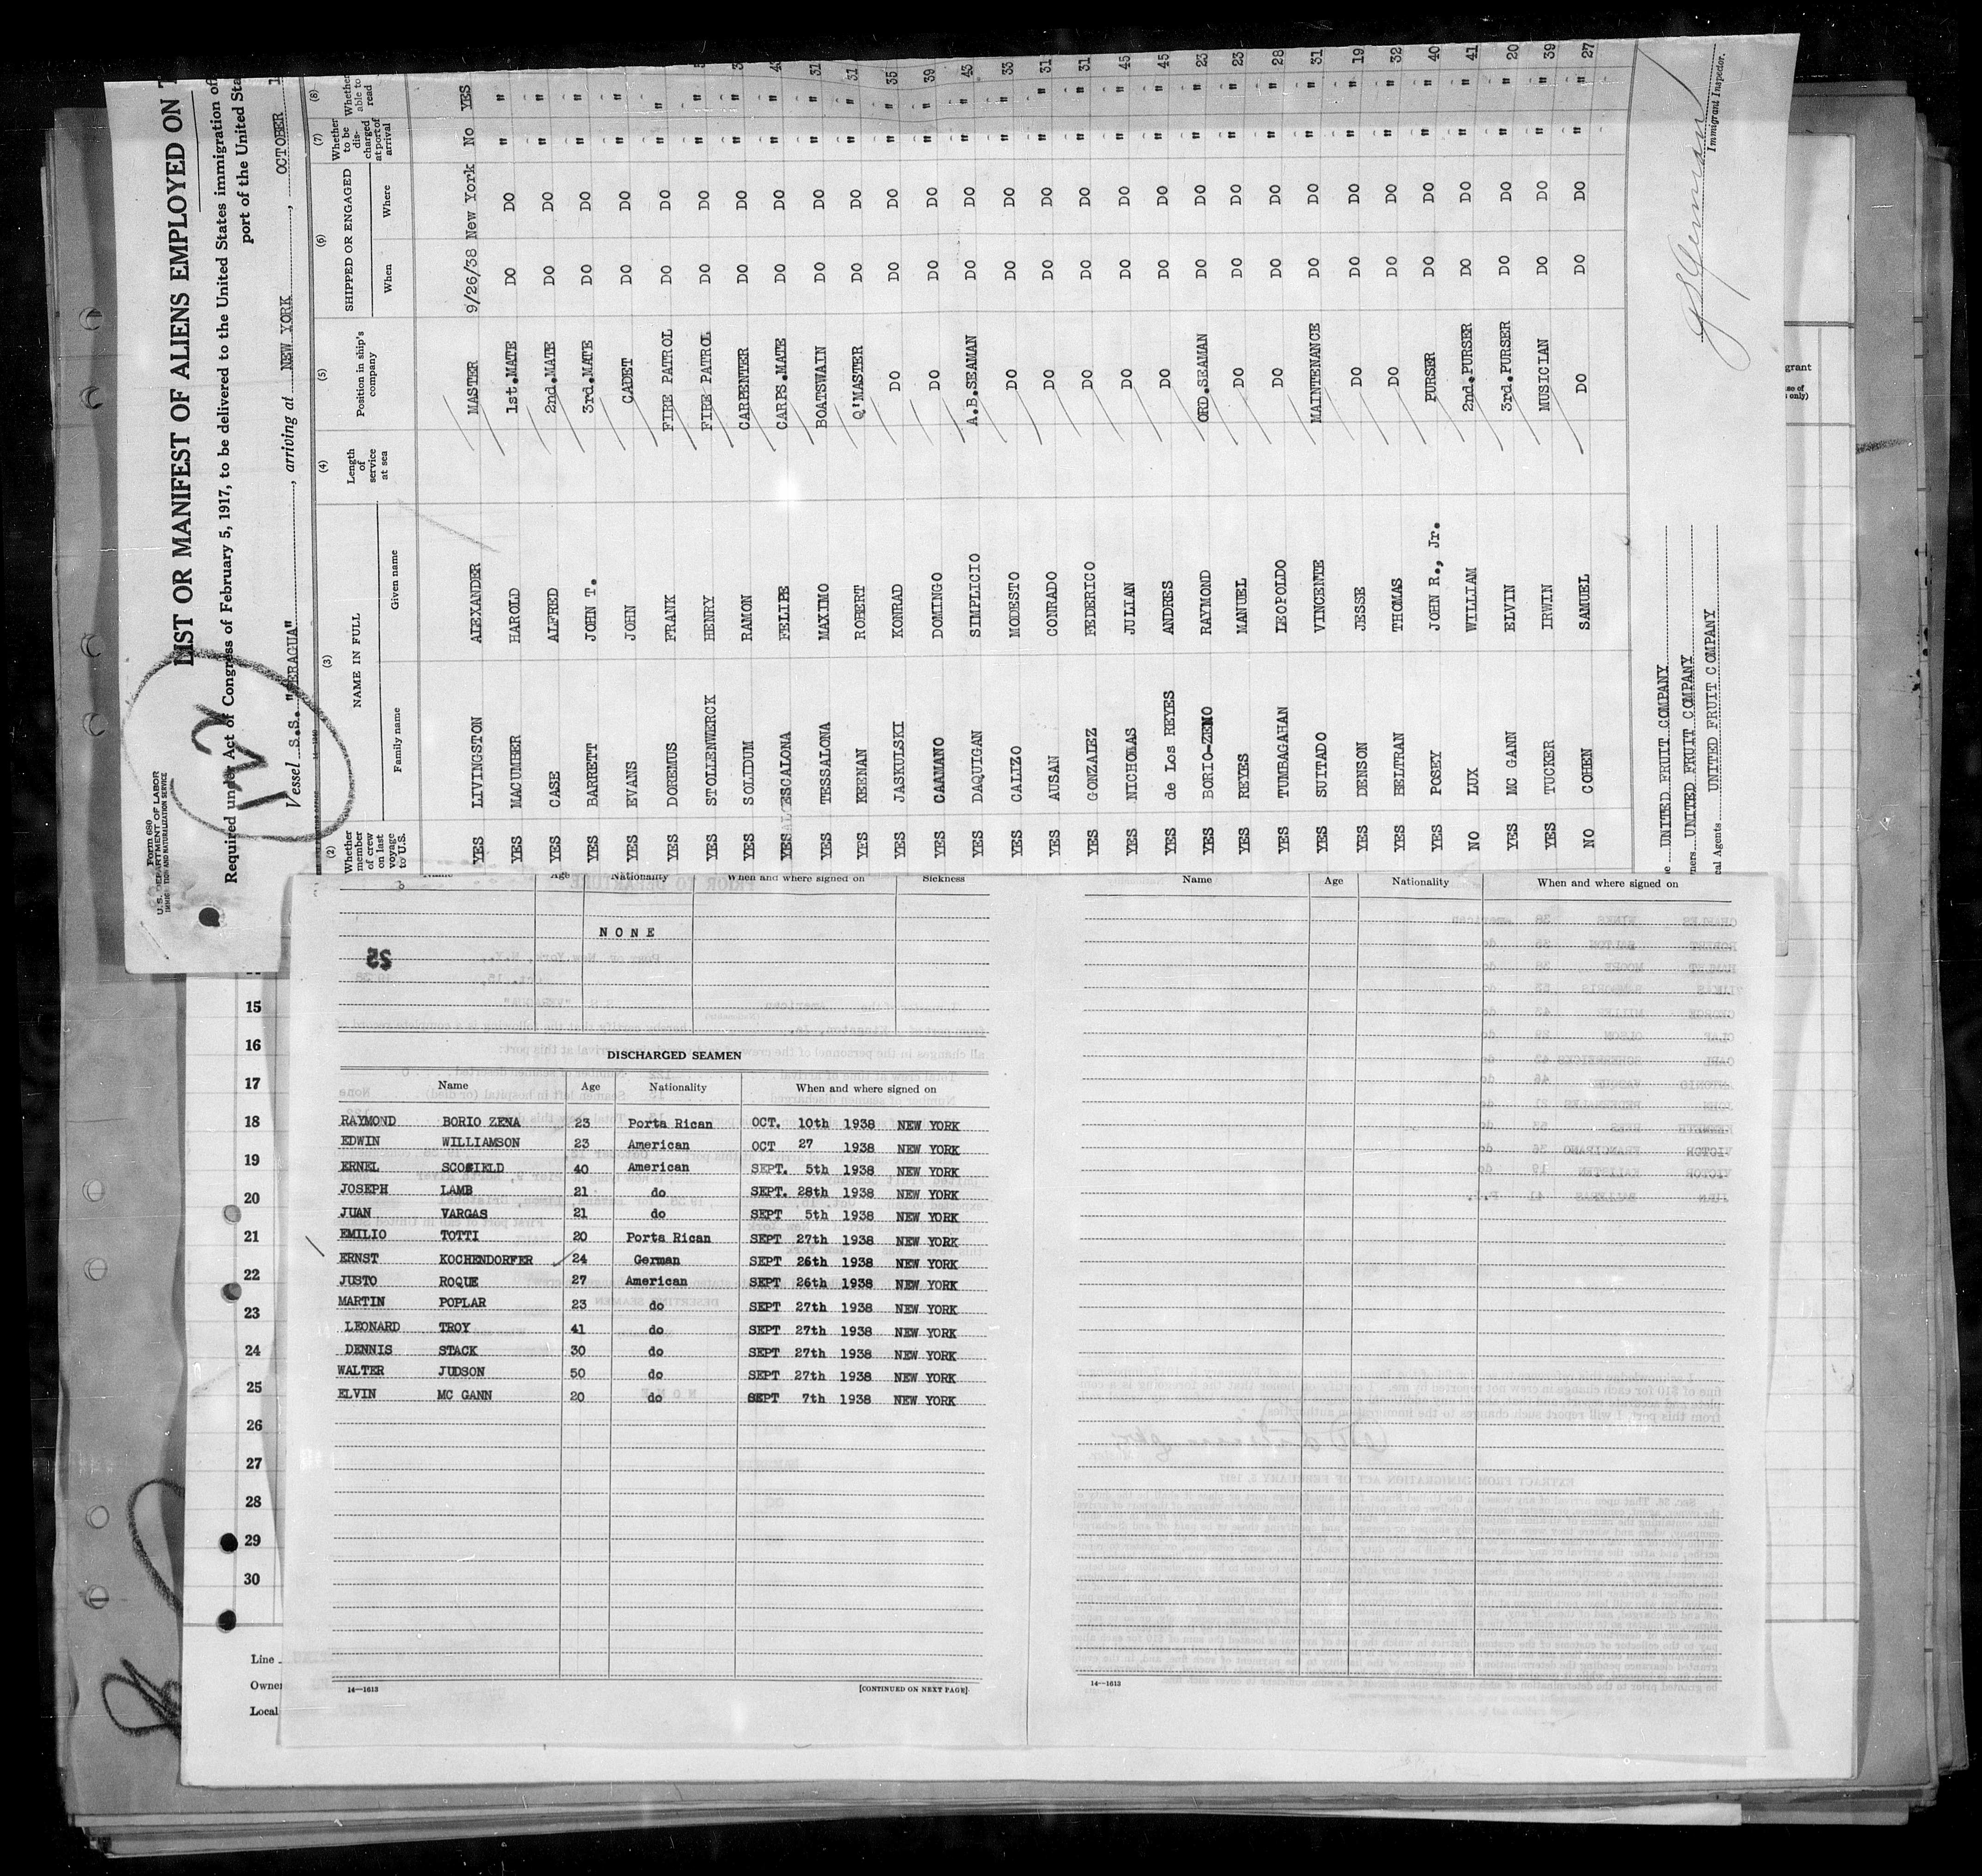 Form 680
U.S. DEPARTMENT OF LABOR
IMMIGRATION AND NATURALIZATION SERVICE
LIST OR MANIFEST OF ALIENS EMPLOYED ON
Required under Act of Congress of February 5, 1917, to be delivered to the United States immigration
port of the United
Vessel S.S. "VERAGUA", arriving at NEW YORK, OCTOBER
(2) (3) (4) (5) (6) (7) (8)
Whether member of crew on last voyage to U.S. NAME IN FULL Family name Given name Length of service at sea Position in ship's company SHIPPED OR ENGAGED When Where Whether to be discharged at port of arrival Whether able to read
YES LIVINGSTON ALEXANDER MASTER 9/26/38 New York No YES
YES MACUMBER HAROLD 1st.MATE DO DO " "
YES CASE ALFRED 2nd.MATE DO DO " "
YES BARRETT JOHN T. 3rd.MATE DO DO " "
YES EVANS JOHN CADET DO DO " "
YES DOREMUS FRANK FIRE PATROL DO DO " "
YES STOLLENWERCK HENRY FIRE PATROL DO DO " "
YES SOLIDUM RAMON CARPENTER DO DO " "
YES ESCALONA FELIPE CARPS.MATE DO DO " "
YES TESSALONA MAXIMO BOATSWAIN DO DO " " 31
YES KEENAN ROBERT Q'MASTER DO DO " " 31
YES JASKULSKI KONRAD DO DO DO " " 35
YES CAAMANO DOMINGO DO DO DO " " 39
YES DAQUIGAN SIMPLICIO A.B.SEAMAN DO DO " " 43
YES CALIZO MODESTO DO DO DO " " 33
YES AUSAN CONRADO DO DO DO " " 31
YES GONZALEZ FEDERICO DO DO DO " " 31
YES NICHOMAS JULIAN DO DO DO " " 45
YES de Los REYES ANDRES DO DO DO " " 45
YES BORIO-ZENO RAYMOND ORD.SEAMAN DO DO " " 23
YES REYES MANUEL DO DO DO " " 23
YES TUMBAGAHAN LEOPOLDO DO DO DO " " 28
YES SUITADO VINCENTE MAINTENANCE DO DO " " 31
YES DENSON JESSE DO DO DO " " 19
YES BELTRAN THOMAS DO DO DO " " 32
YES POSEY JOHN R., Jr. PURSER DO DO " " 40
NO LUX WILLIAM 2nd.PURSER DO DO " " 41
YES MC GANN ELVIN 3rd.PURSER DO DO " " 20
YES TUCKER IRWIN MUSICIAN DO DO " " 39
NO COHEN SAMUEL DO DO DO " " 27
UNITED FRUIT COMPANY
UNITED FRUIT COMPANY
Agents UNITED FRUIT COMPANY
Immigrant Inspector.
Name Age Nationality When and where signed on Sickness
NONE
DISCHARGED SEAMEN
Name Age Nationality When and where signed on
RAYMOND BORIO ZENA 23 Porta Rican OCT. 10th 1938 NEW YORK
EDWIN WILLIAMSON 23 American OCT 27 1938 NEW YORK
ERNEL SCOFIELD 40 American SEPT. 5th 1938 NEW YORK
JOSEPH LAMB 21 do SEPT. 28th 1938 NEW YORK
JUAN VARGAS 21 do SEPT 5th 1938 NEW YORK
EMILIO TOTTI 20 Porta Rican SEPT 27th 1938 NEW YORK
ERNST KOCHENDORFER 24 German SEPT 26th 1938 NEW YORK
JUSTO ROQUE 27 American SEPT 26th 1938 NEW YORK
MARTIN POPLAR 23 do SEPT 27th 1938 NEW YORK
LEONARD TROY 41 do SEPT 27th 1938 NEW YORK
DENNIS STACK 30 do SEPT 27th 1938 NEW YORK
WALTER JUDSON 50 do SEPT 27th 1938 NEW YORK
ELVIN MC GANN 20 do SEPT 7th 1938 NEW YORK
14—1613
[CONTINUED ON NEXT PAGE]
Name Age Nationality When and where signed on
14—1613
15
16
17
18
19
20
21
22
23
24
25
26
27
28
29
30
Line
Owner
Local